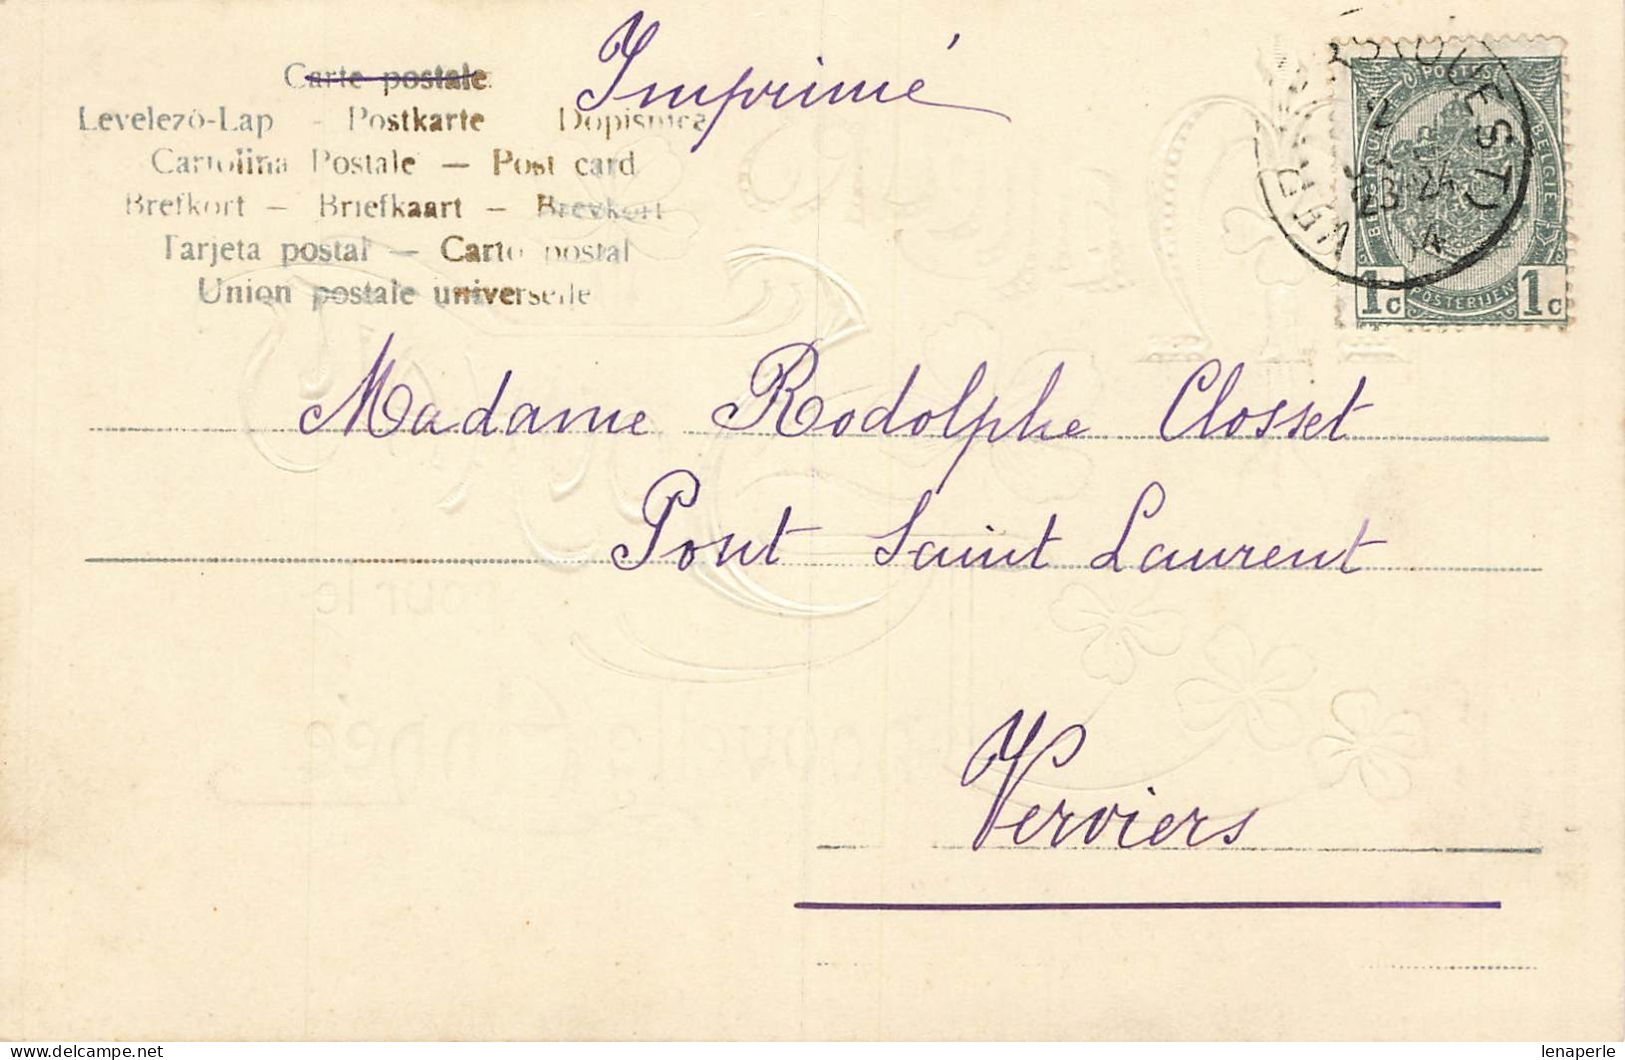 Imprimé
Carte postale
Levelező-Lap - Postkarte Dopisnica
Cartolina Postale — Post card
Brefkort — Briefkaart — Brevkort
Tarjeta postal — Carto postal
Union postale universelle
POSTES
BELGIQUE
BELGIE
1c POSTERIJEN 1c
Madame Rodolphe Closset
Pont Saint Laurent
Verviers
pour le
nouvelle Année
lenaperle